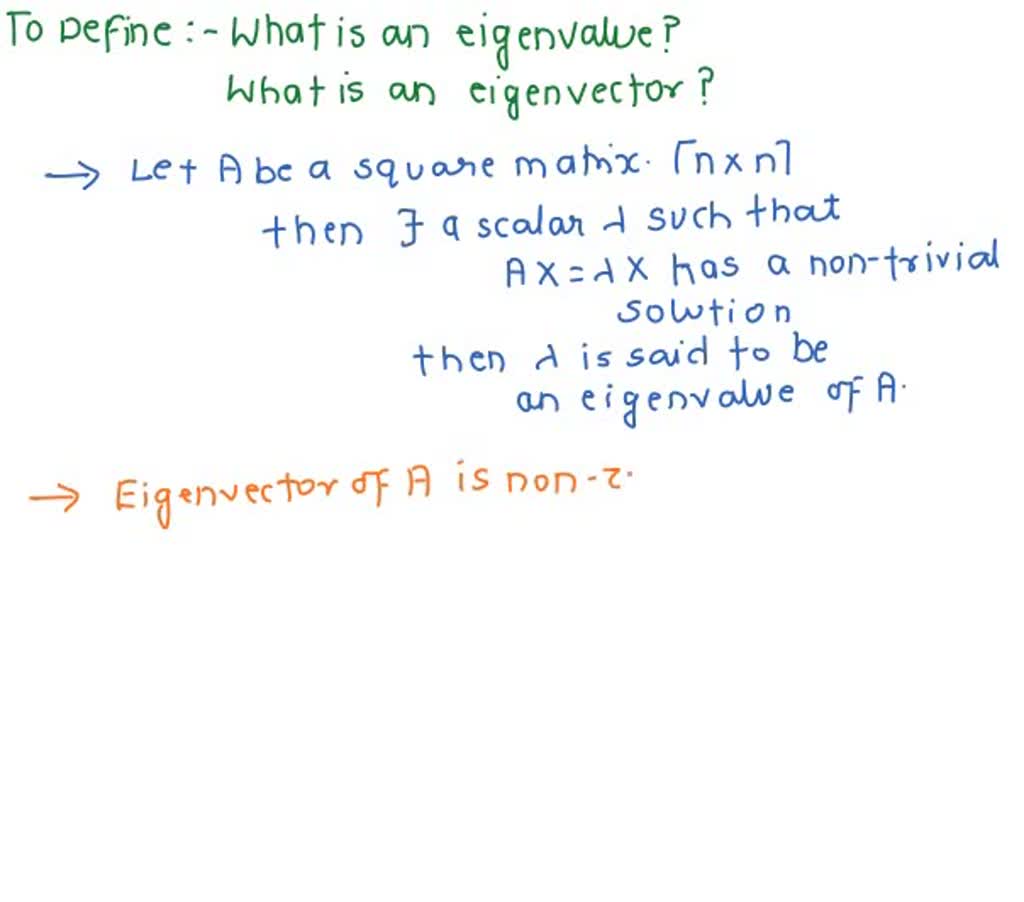 To Define :- What is an eigenvalue?
What is an eigenvector?
→ Let A be a square matrix. [n x n]
then ∃ a scalar λ such that
AX = λX has a non-trivial
solution
then λ is said to be
an eigenvalue of A.
→ Eigenvector of A is non-z.